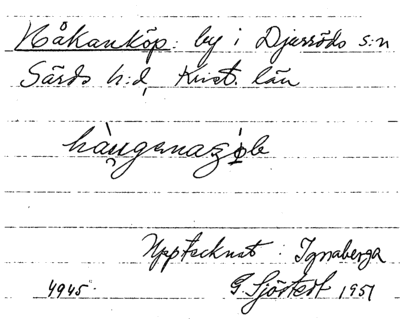 Håkanköp: by i Djurröds s:n
Gärds h:d, Krist. län
Upptecknat: Ignaberga
4945. G. Sjöstedt 1951